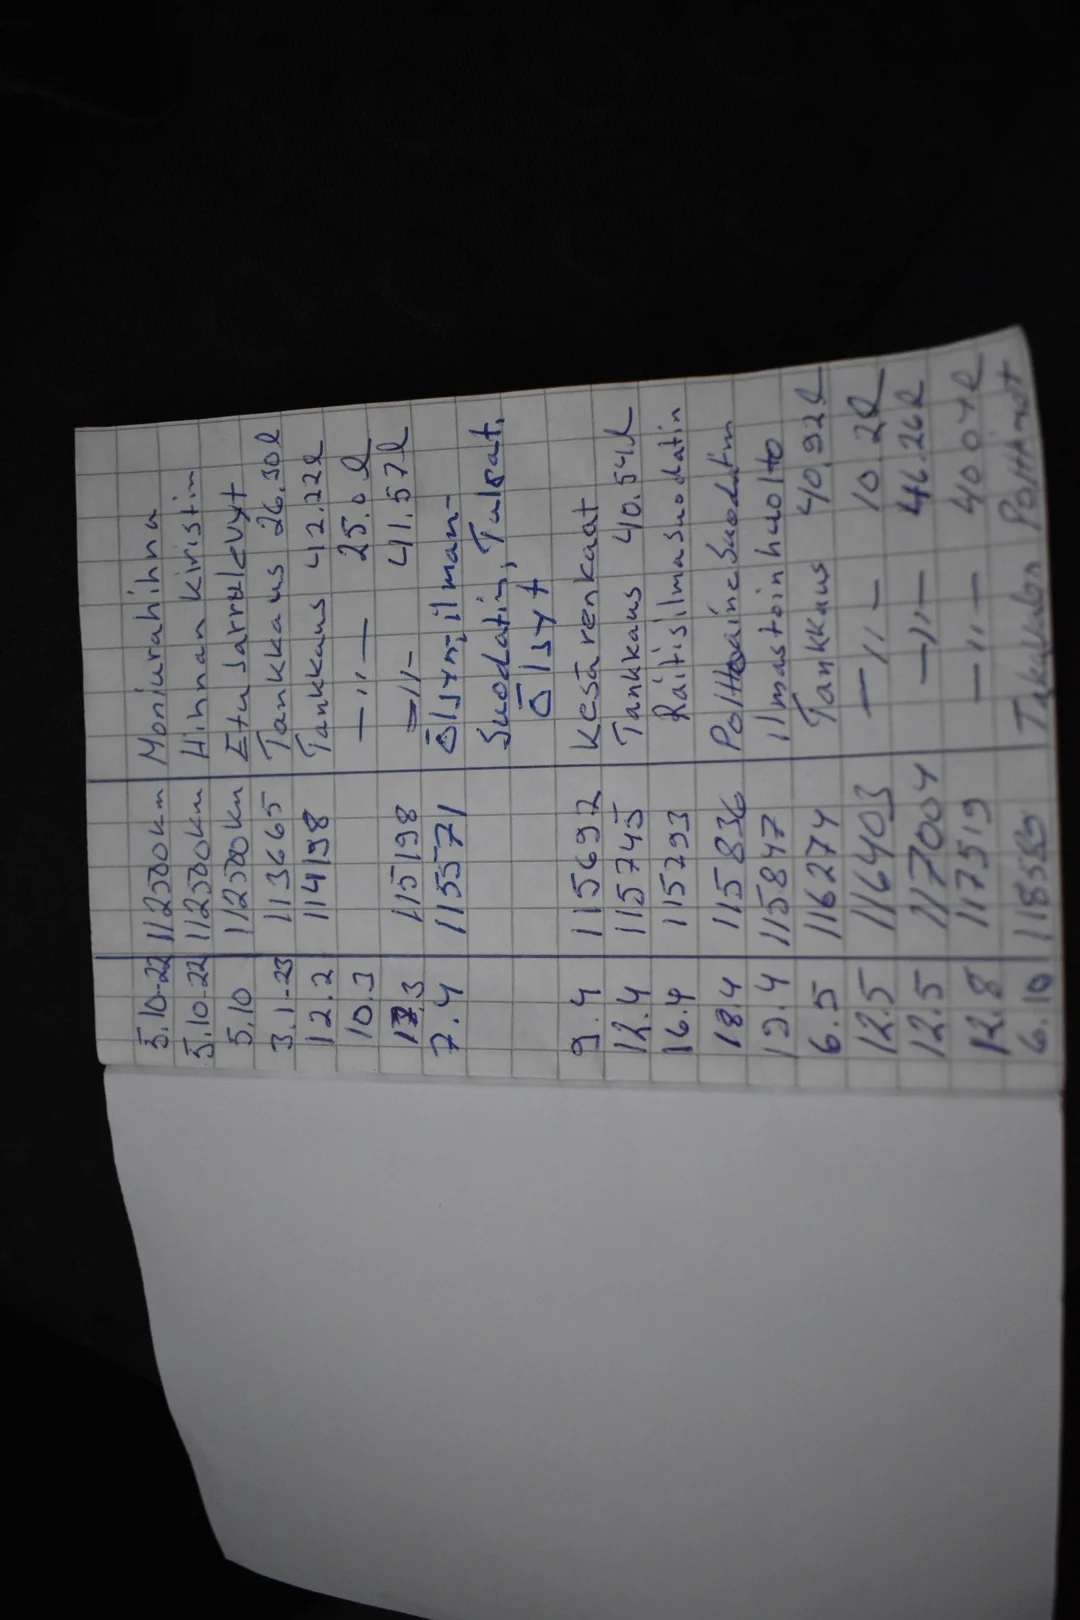 5.10-22 112500km Moniurahihna
5.10.22 112500km Hihnan kiristin
5.10 112500km Etu Jarrulevyt
3.1-23 113665 Tankkaus 26.30l
12.2 114198 Tankkaus 42.22l
10.3 —〃— 25.0l
17.3 115198 =〃- 41.57l
7.4 115571 Öljyn, ilman-
Suodatin, Tulpat,
Öljyt
9.4 115692 Kesärenkaat
12.4 115745 Tankkaus 40.54l
16.4 115793 Raitisilmasuodatin
18.4 115836 Polttoaine Suodatin
19.4 115847 Ilmastoinhuolto
6.5 116274 Tankkaus 40.92l
12.5 116403 —〃— 10.2l
12.5 117004 —〃— 46.26l
12.8 117519 —〃— 40.04l
6.10 118589 Takavalon Polttimot